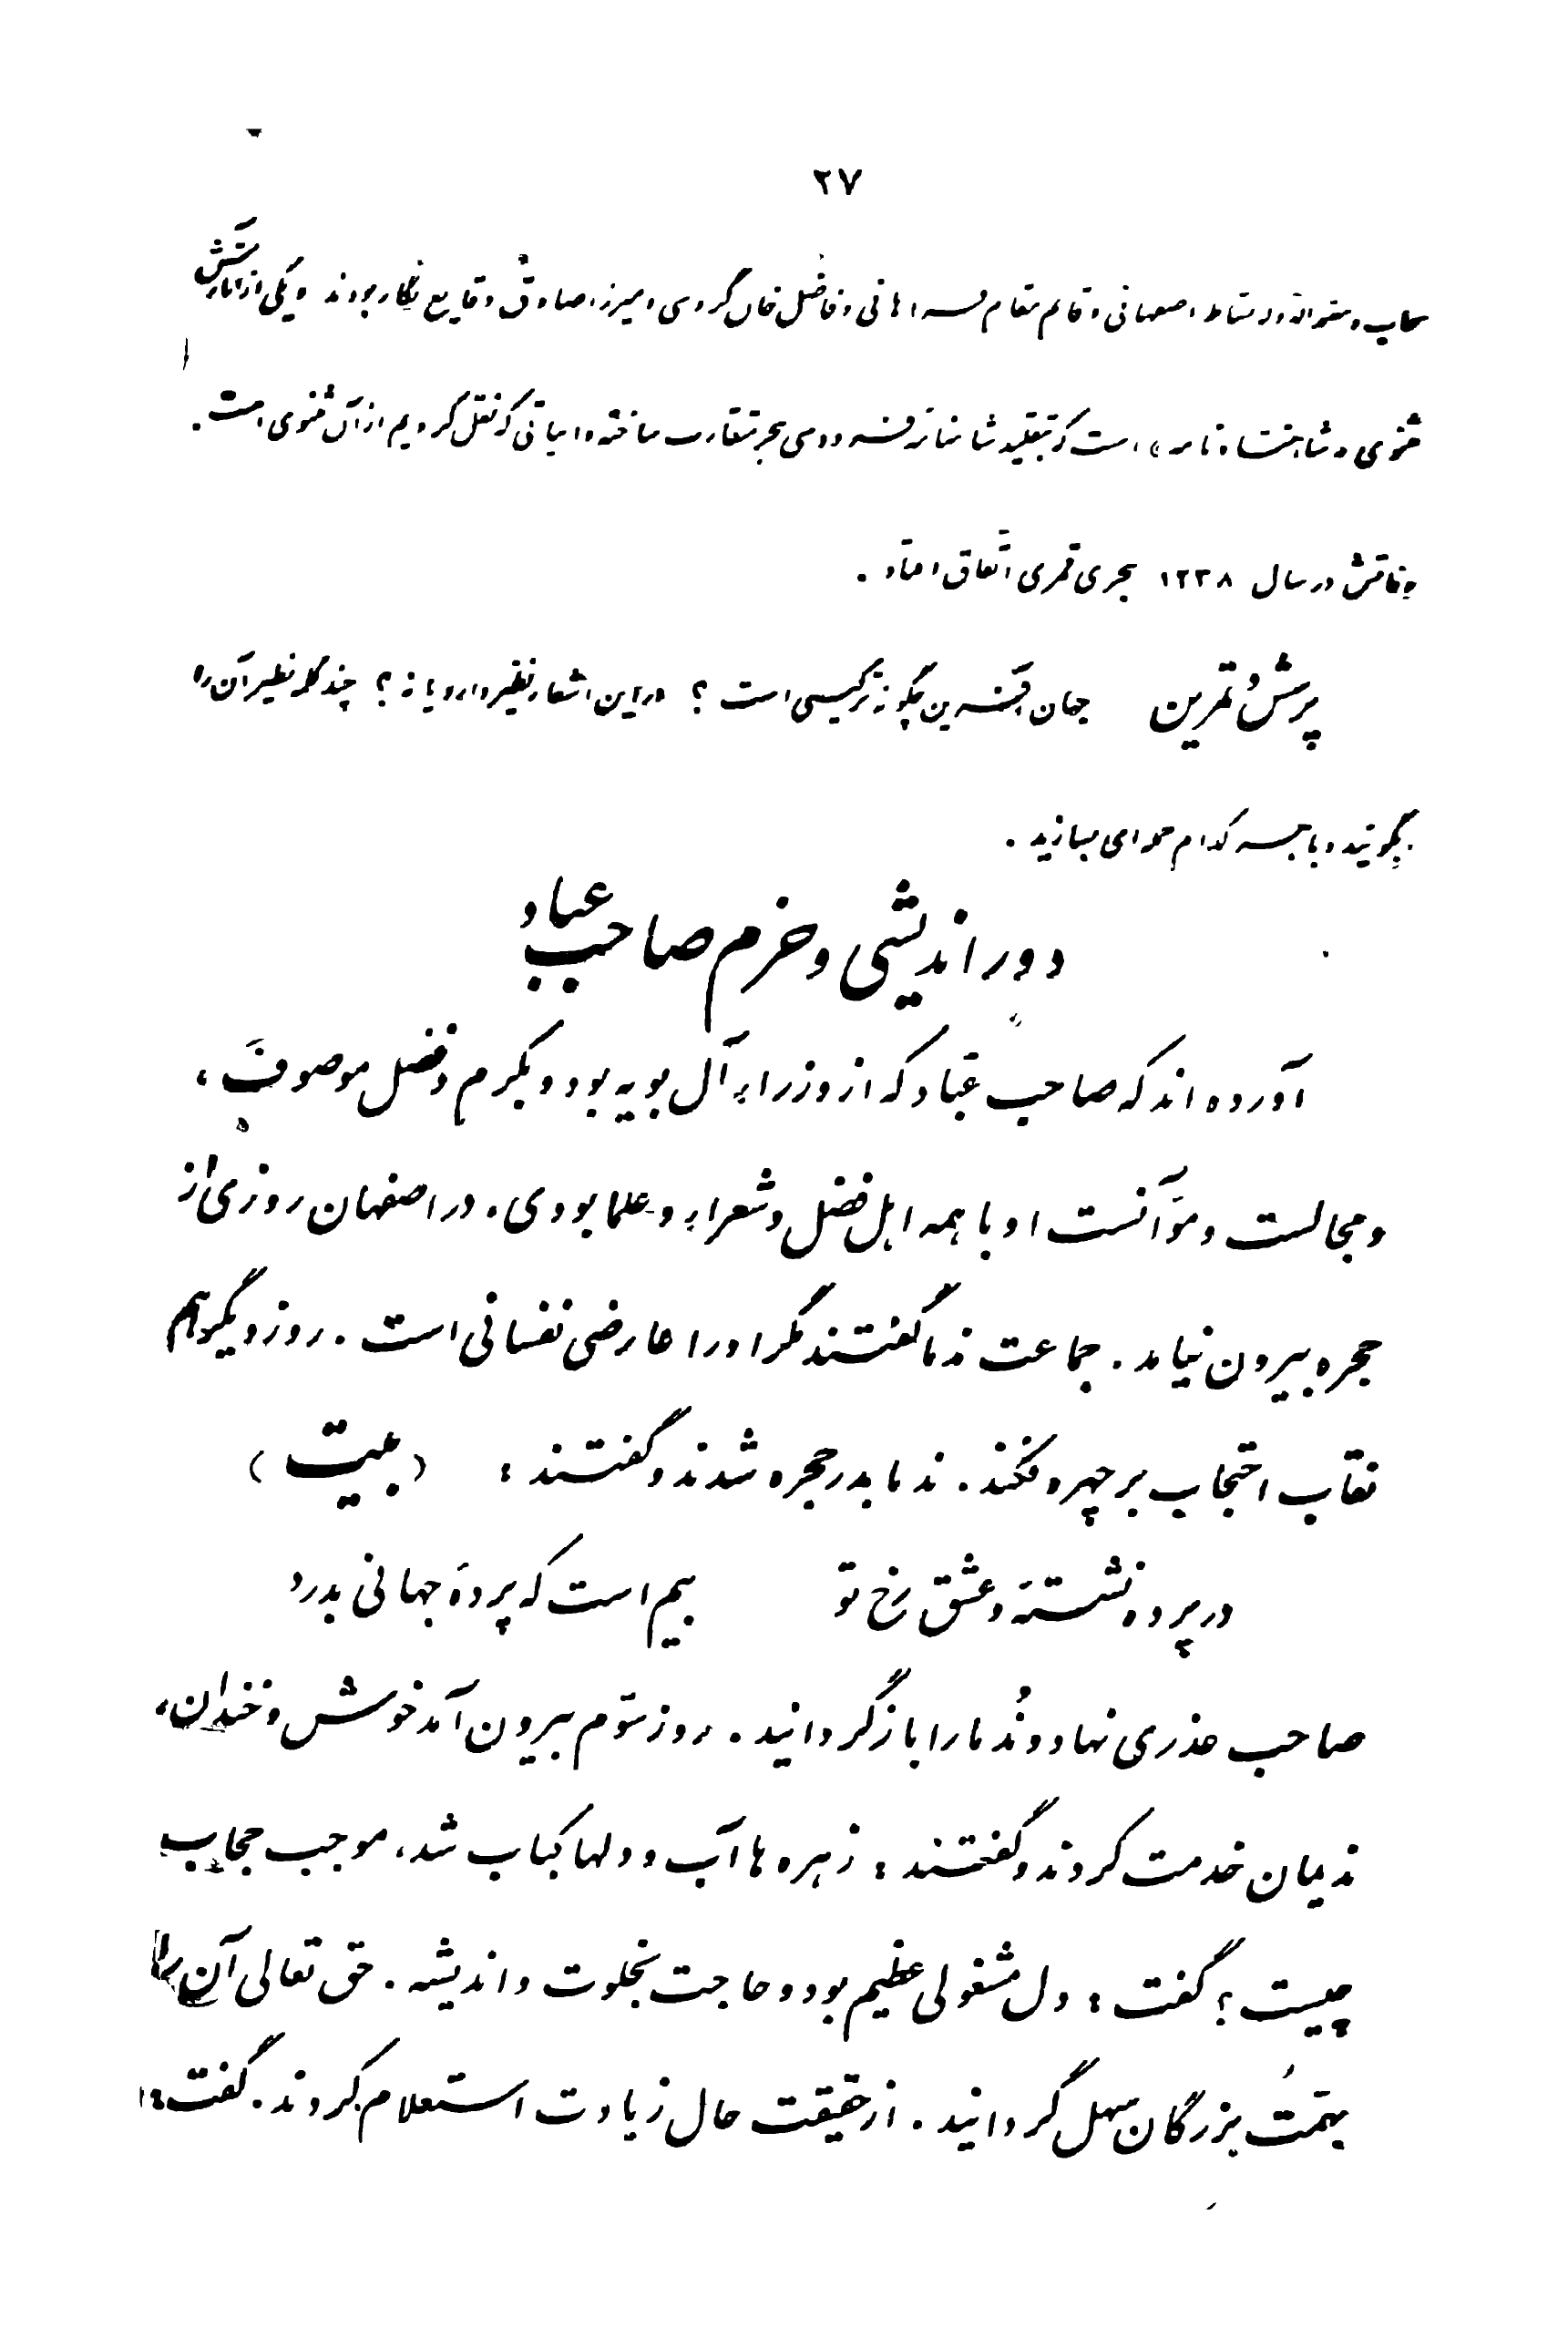 ۲۷
سحاب و معتمدالدوله نشاط اصفهانی و قائم مقام فراهانی و فاضل خان گروسی و میرزا صادق وقایع نگار بودند و یکی از آثارش
مثنوی «شاهنشاه نامه» است که بتقلید شاهنامه فردوسی ببحر متقارب ساخته و ابیاتی که نقل کردیم از آن مثنوی است.
وفاتش در سال ۱۲۳۸ هجری قمری اتّفاق افتاد.
پرسش و تمرین   جهان آفرین چگونه ترکیبی است؟ در این اشعار نظیر دارد یا نه؟ چند کلمه نظیر آن را
بگوئید و با هر کدام جمله‌ای بسازید.
دوراندیشی و حزم صاحب عباد
آورده‌اند که صاحب عبّاد که از وزراء آل بویه بود و بکرم و فضل موصوف،
و مجالست و مؤآنست او با همه اهل فضل و شعراء و علما بودی. در اصفهان روزی از
حجره بیرون نیامد. جماعت ندما گفتند مگر او را عارضی نفسانی است. روز دیگر هم
نقاب احتجاب بر چهره فکند. ندما بدر حجره شدند و گفتند: (بیت)
در پرده نشستهٔ و عشق رخ تو   بیم است که پردهٔ جهانی بدرد
صاحب عذری نهاد و نُدما را باز گردانید. روز سوّم بیرون آمد خوش و خندان،
ندیمان خدمت کردند و گفتند: زهره‌ها آب و دلها کباب شد، موجب حجاب
چیست؟ گفت: دل مشغولی عظیم بود و حاجت بخلوت و اندیشه. حق تعالی آن را
بهمّت بزرگان سهل گردانید. از حقیقت حال زیادت استعلام کردند. گفت: